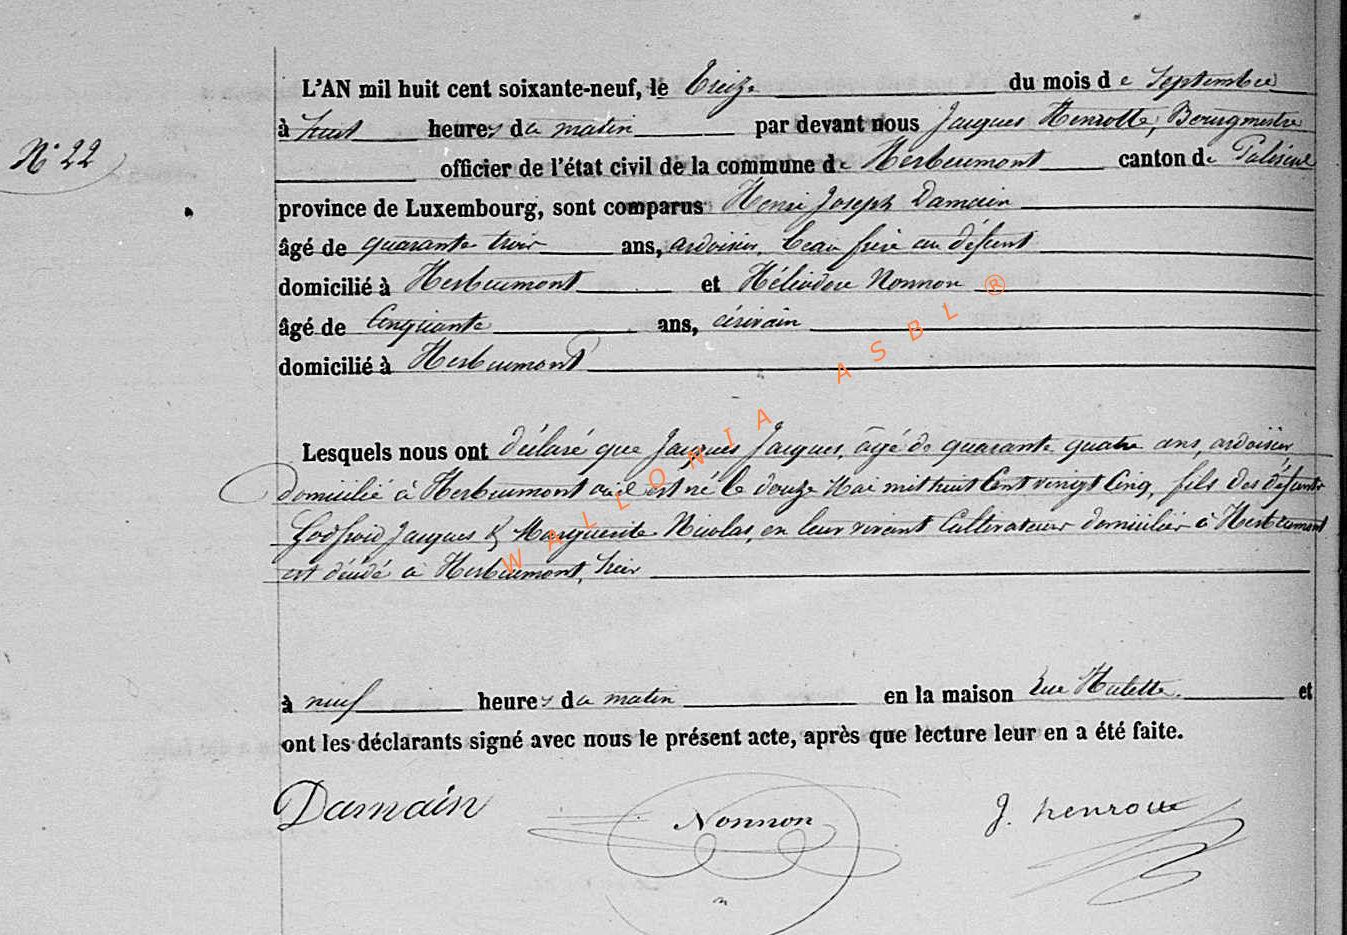 L'AN mil huit cent soixante-neuf, le treize du mois de Septembre
à huit heures du matin par devant nous Jacques Henrotte, Bourgmestre
N° 22
officier de l'état civil de la commune de Herbeumont canton de Paliseul
province de Luxembourg, sont comparus Henri Joseph Damain
âgé de quarante trois ans, ardoisier, beau frère au défunt
domicilié à Herbeumont et Héliodore Nonnon
âgé de Cinquante ans, écrivain
domicilié à Herbeumont
Lesquels nous ont déclaré que Jacques Jacques, âgé de quarante quatre ans, ardoisier,
domicilié à Herbeumont où il est né le douze Mai mil huit Cent vingt Cinq, fils des défunts
Godfroid Jacques & Marguerite Nicolas, en leur vivant Cultivateurs domiciliés à Herbeumont
est décédé à Herbeumont, hier
à neuf heures du matin en la maison Rue Hulette et
ont les déclarants signé avec nous le présent acte, après que lecture leur en a été faite.
Damain Nonnon J. henrotte
WALLONIA ASBL ®